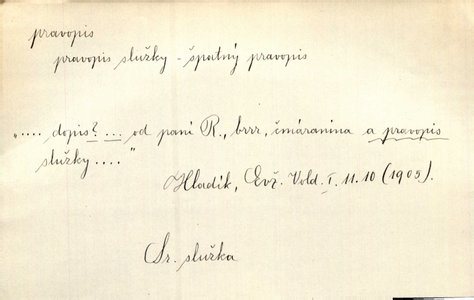 pravopis
pravopis služky - špatný pravopis
„.... dopis? ... od paní R., brrr, čmáranina a pravopis
služky ...."
Hladík, Evž. Vold. I. 11.10 (1905).
Sr. služka